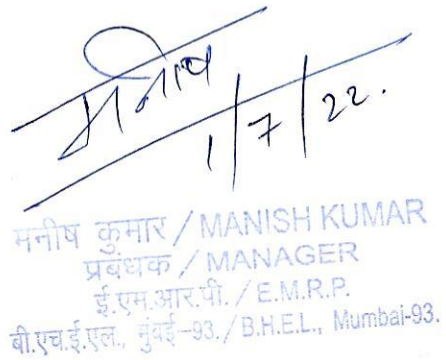 मनीष
1/7/22.
मनीष कुमार / MANISH KUMAR
प्रबंधक / MANAGER
ई.एम.आर.पी. / E.M.R.P.
बी.एच.ई.एल., मुंबई-93. / B.H.E.L., Mumbai-93.